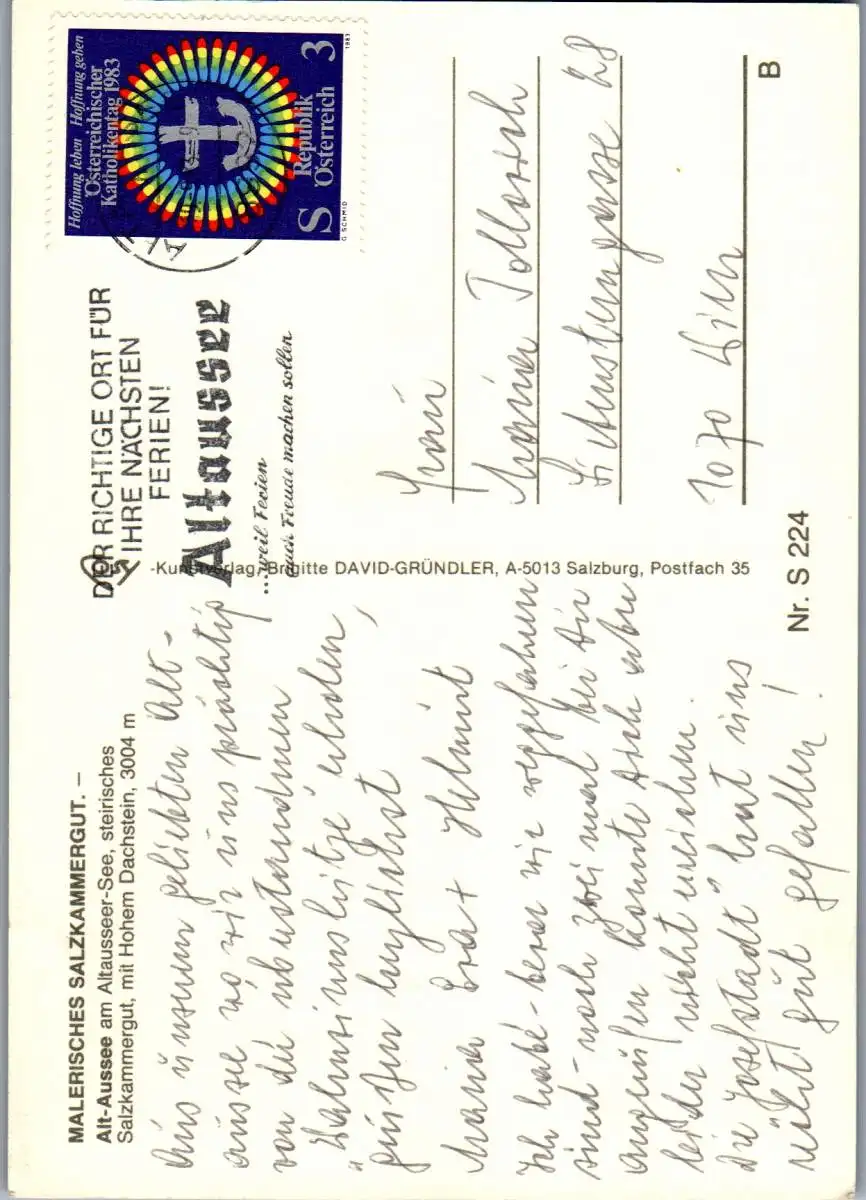 MALERISCHES SALZKAMMERGUT. –
Alt-Aussee am Altausseer-See, steirisches
Salzkammergut, mit Hohem Dachstein, 3004 m
Aus unserem geliebten Alt-
aussee, wo wir uns prächtig
von der überstandenen
"Wahnsinnshitze" erholen,
grüßen herzlichst
Maria Helmut
Ich habe - bevor wir weggefahren
sind - noch zwei mal bei Dir
angerufen konnte Dich aber
leider nicht erreichen.
Die "Josefstadt" hat uns
nicht gut gefallen!
-Kunstverlag Brigitte DAVID-GRÜNDLER, A-5013 Salzburg, Postfach 35
DER RICHTIGE ORT FÜR
IHRE NÄCHSTEN
FERIEN!
Altaussee
...weil Ferien
auch Freude machen sollen
Hoffnung leben Hoffnung geben
Österreichischer
Katholikentag 1983
Republik
Österreich
S 3
G. SCHMID
1983
Frau
Maria
gasse 28
1070 Wien
B
Nr. S 224